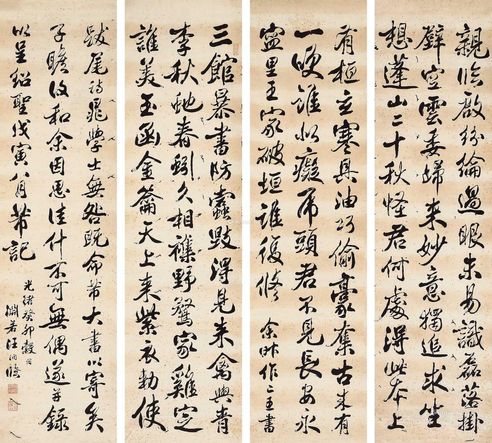 親臨啟紛綸過眼未易識磊落掛
壁空雲委歸來妙意獨追求坐
想蓬山二十秋怪君何處得此本上
有桓玄寒具油巧偷豪奪古來有
一咲誰似癡虎頭君不見長安永
寍里王家破垣誰復修 余昨作二王書
三館暴書防蠹毀得見來禽與青
李秋虵春蚓久相襍野鶩家雞定
誰美玉函金籥天上來紫衣勅使
跋尾詩晁學士無咎既命芾大書以寄矣
子瞻後和余因思佳什不可無偶遂并錄
以呈紹聖戊寅八月芾記
光緒癸卯穀旦
淵若汪洵臨